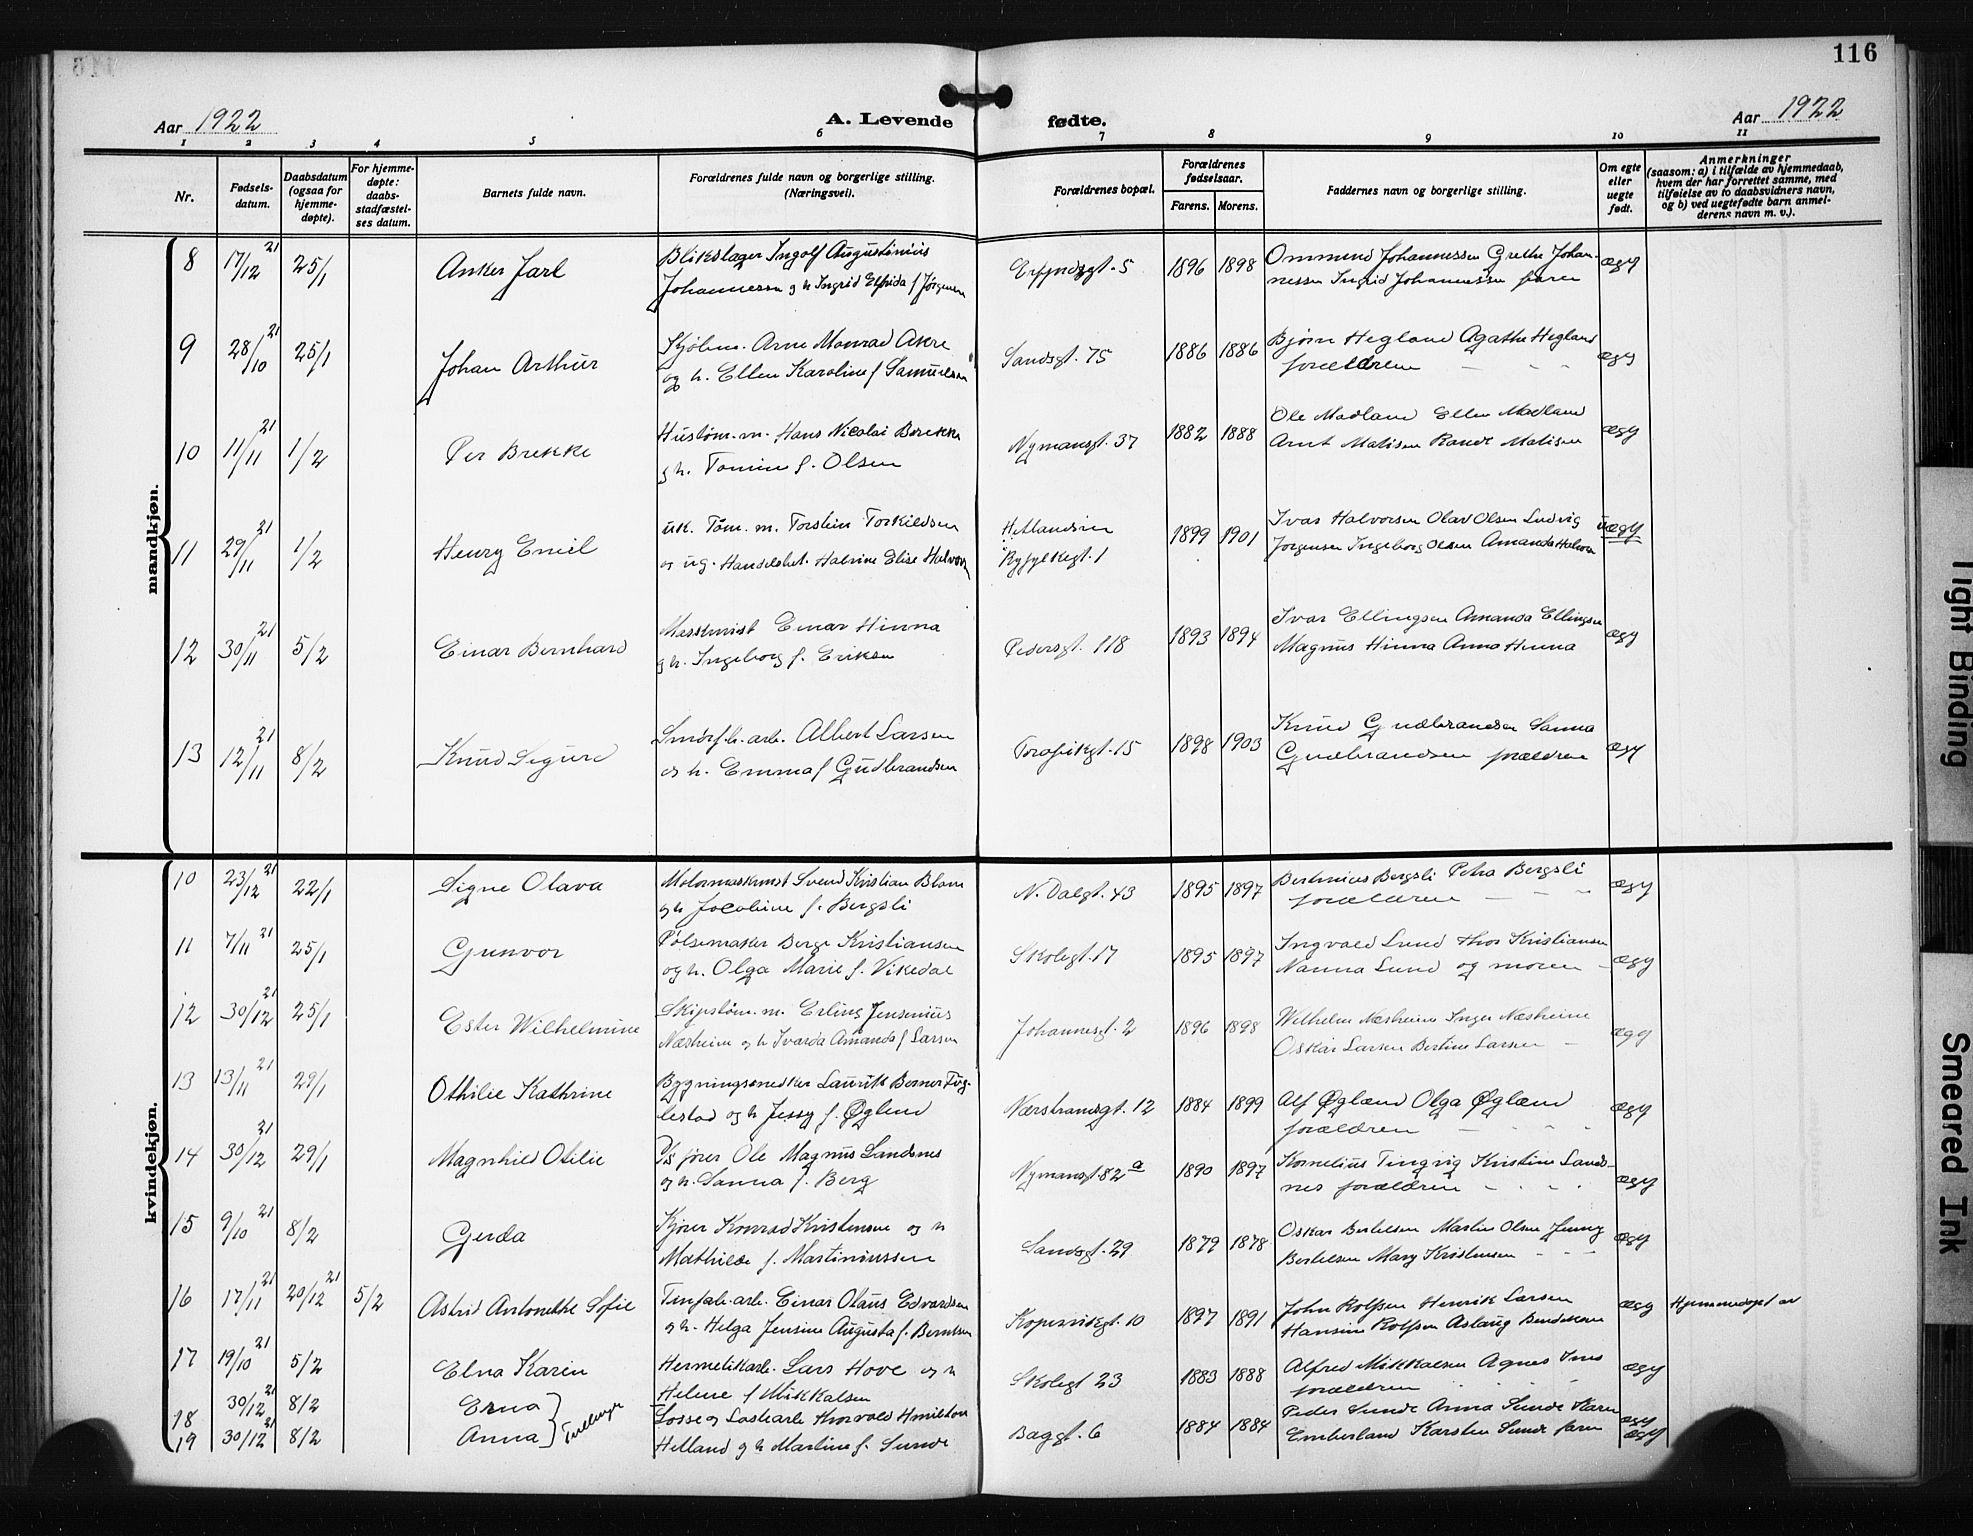 116
Aar 1922
A. Levende fødte.
Aar 1922
1 2 3 4 5 6 7 8 9 10 11
Nr.
Fødsels-
datum.
Daabsdatum
(ogsaa for
hjemme-
døpte).
For hjemme-
døpte:
daabs-
stadfæstel-
ses datum.
Barnets fulde navn.
Forældrenes fulde navn og borgerlige stilling.
(Næringsvei).
Forældrenes bopæl.
Forældrenes
fødselsaar.
Farens. Morens.
Faddernes navn og borgerlige stilling.
Om egte
eller
uegte
født.
Anmerkninger
(saasom: a) i tilfælde av hjemmedaab,
hvem der har forrettet samme, med
tilføielse av to daabsvidners navn,
og b) ved uegtefødte barn anmel-
derens navn m. v.).
mandkjøn.
8 17/12 21 25/1 Anker Jarl Blikslager Ingolf Augustinius 1896 1898 Ommund Johannessen Grethe Johan- ægt
Johannessen og h Ingrid Elfrida f Jørgensen nessen Ingrid Johannessen faren
9 28/10 21 25/1 Johan Arthur Arne Monrad Sandsgt. 75 1886 1886 Bjørn Hegland Agathe Hegland ægt
og h. Ellen Karoline f Samuelsen forældren
10 11/11 21 1/2 Per Brekke Hustøm.m. Hans Nicolai Brekke Nymansgt. 37 1882 1888 Ole Madland Ellen Madland ægt
og h. Tomine f. Olsen Arnt Matisen Matisen
11 29/11 21 1/2 Henry Emil uk. Tøm.m. Torstein Torkildsen Hetlandsvn 1899 1901 Ivar Halvorsen Olav Olsen Ludvig uægt
og ug. Halvorsen Ryfylkegt. 1 Jørgensen Ingeborg Olsen Amanda Halvorsen
12 30/11 21 5/2 Einar Bernhard Maskinist Einar Hinna Pedersgt. 118 1893 1894 Ivar Ellingsen Amanda Ellingsen ægt
og h. Ingeborg f. Eriksen Magnus Hinna Anna Hinna
13 12/11 21 8/2 Knud Sigurd Smørf.b.arb. Albert Larsen 1898 1903 Knud Gudbrandsen Sanna ægt
og h. Emma f Gudbrandsen Gudbrandsen forældrene
kvindekjøn.
10 23/12 21 22/1 Signe Olava Motormaskinist Svend Kristian N. Dalgt. 43 1895 1897 Bertinius Bergsli Petra Bergsli ægt
og h Jacobine f. Bergsli forældren
11 7/11 21 25/1 Gunvor Pølsemaker Børge Kristiansen Skolegt. 17 1895 1897 Ingvald Lund Thor Kristiansen ægt
og h. Olga Marie f. Vikedal Nanna Lund og moren
12 30/12 21 25/1 Ester Wilhelmine Skipstøm.m. Erling Jensenius Johannesgt. 2 1896 1898 Wilhelm Næsheim Inger Næsheim ægt
Næsheim og h Ivarda Amanda f Larsen Oskar Larsen Bertine Larsen
13 13/11 21 29/1 Othilie Kathrine Bygningssnedker Laurits Berner Fug- Nærstrandsgt. 12 1884 1899 Alf Øglænd Olga Øglænd ægt
lestad og h Jessy f. Øglend forældren
14 30/12 21 29/1 Magnhild Otilie D/s fører Ole Magnus Landsnes Nymansgt 82 a 1890 1897 Kornelius Tingvig Kristine Lands- ægt
og h. Sanna f. Berg nes forældren
15 9/10 21 8/2 Gerda Kjører Konrad Kristensen og h Sandsgt. 29 1879 1878 Oskar Bertelsen Martin Olsen Jenny ægt
Mathilde f. Martiniussen Bertelsen Mary Kristensen
16 17/11 21 20/12 21 5/2 Astrid Antonette Sofie Tinfab.arb. Einar Olaus Edvardsen Kopervikgt. 10 1897 1891 John Rolfsen Henrik Larsen ægt Hjemmedøpt av
og h. Helga Jensine Augusta f. Berntsen Hansine Rolfsen Aslaug Bendiksen
17 19/10 21 5/2 Elna Karin Hermetikarb. Lars Hove og h Skolegt 23 1883 1888 Alfred Mikkalsen Agnes ægt
Helene f Mikkalsen forældren
18 30/12 21 8/2 Erna Losse og Lastearb Thorvald Hmilton Baggt. 6 1884 1884 Peder Sunde Anna Sunde Karen ægt
19 30/12 21 8/2 Anna } Tvillinger Helland og h Martine f. Sunde Emberland Karsten Sunde faren ægt
Tight Binding
Smeared Ink